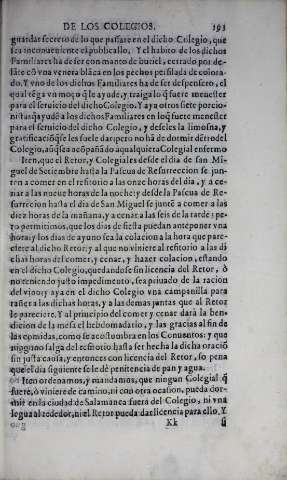 DE LOS COLEGIOS. 193
guardar secreto de lo que passare en el dicho Colegio, que
sea inconueniente el publicallo. Y el habito de los dichos
Familiares ha de ser con manto de buriel, cerrado por de-
lãte cõ vna venera blãca en los pechos perfilada de colora-
do. Y vno de los dichos Familiares ha de ser despensero, el
qual tēga vn moço q̃ le ayude, y traiga lo q̃ fuere menester
para el seruicio del dicho Colegio. Y aya otros siete porcio-
nistas q̃ ayudē a los dichos Familiares en lo q̃ fuere menester
para el seruicio del dicho Colegio, y deseles la limosna, y
gratificaciõ q̃ se les suele dar: pero no hã de dormir dētro del
Colegio, aũq̃ sea acõpañãdo a qualquiera Colegial enfermo
Iten, que el Retor, y Colegiales desde el dia de san Mi-
guel de Setiembre hasta la Pascua de Resurreccion se jun-
ten a comer en el refitorio a las onze horas del dia, y a ce-
nar a las nueue horas de la noche: y desde la Pascua de Re-
surreccion hasta el dia de San Miguel se juntē a comer a las
diez horas de la mañana, y a cenar a las seis de la tarde: pe-
ro permitimos, que los dias de fiesta puedan anteponer vna
hora: y los dias de ayuno sea la colacion a la hora que pare-
ciere al dicho Retor: y al que no viniere al refitorio a las di
chas horas del comer, y cenar, y hazer colacion, estando
en el dicho Colegio, quedandose sin licencia del Retor, ò
no teniendo justo impedimento, sea priuado de la racion
del vino: y aya en el dicho Colegio vna campanilla para
tañer a las dichas horas, y a las demas juntas que al Retor
le pareciere. Y al principio del comer y cenar dara la ben-
dicion de la mesa el hebdomadario, y las gracias al fin de
las comidas, como se acostumbra en los Conuentos: y que
ninguno salga del refitorio hasta ser hecha la dicha oraciõ
sin justa causa, y entonces con licencia del Retor, so pena
que el dia siguiente se le dē penitencia de pan y agua.
Iten ordenamos, y mandamos, que ningun Colegial q̃
fuere, ò viniere de camino, ni con otra ocasion, pueda dor-
mir en la ciudad de Salamanca fuera del Colegio, ni vna
legua al rededor, ni el Retor pueda dar licencia para ello. Y
Kk si